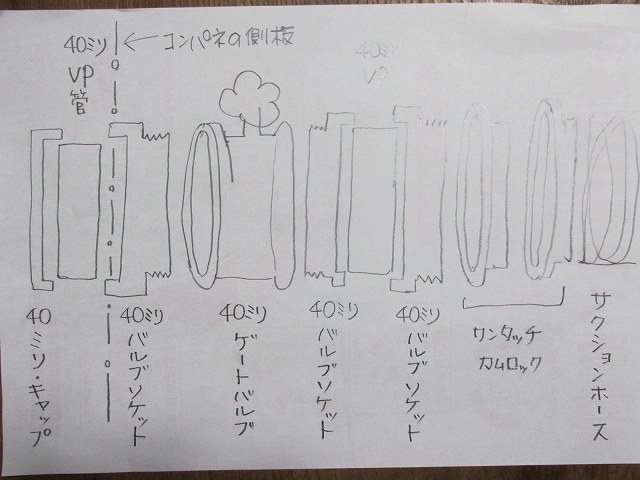 40ミリ
VP
管
コンパネの側板
40ミリ
VP
40ミリ・キャップ
40ミリ
バルブソケット
40ミリ
ゲートバルブ
40ミリ
バルブソケット
40ミリ
バルブソケット
ワンタッチ
カムロック
サクションホース